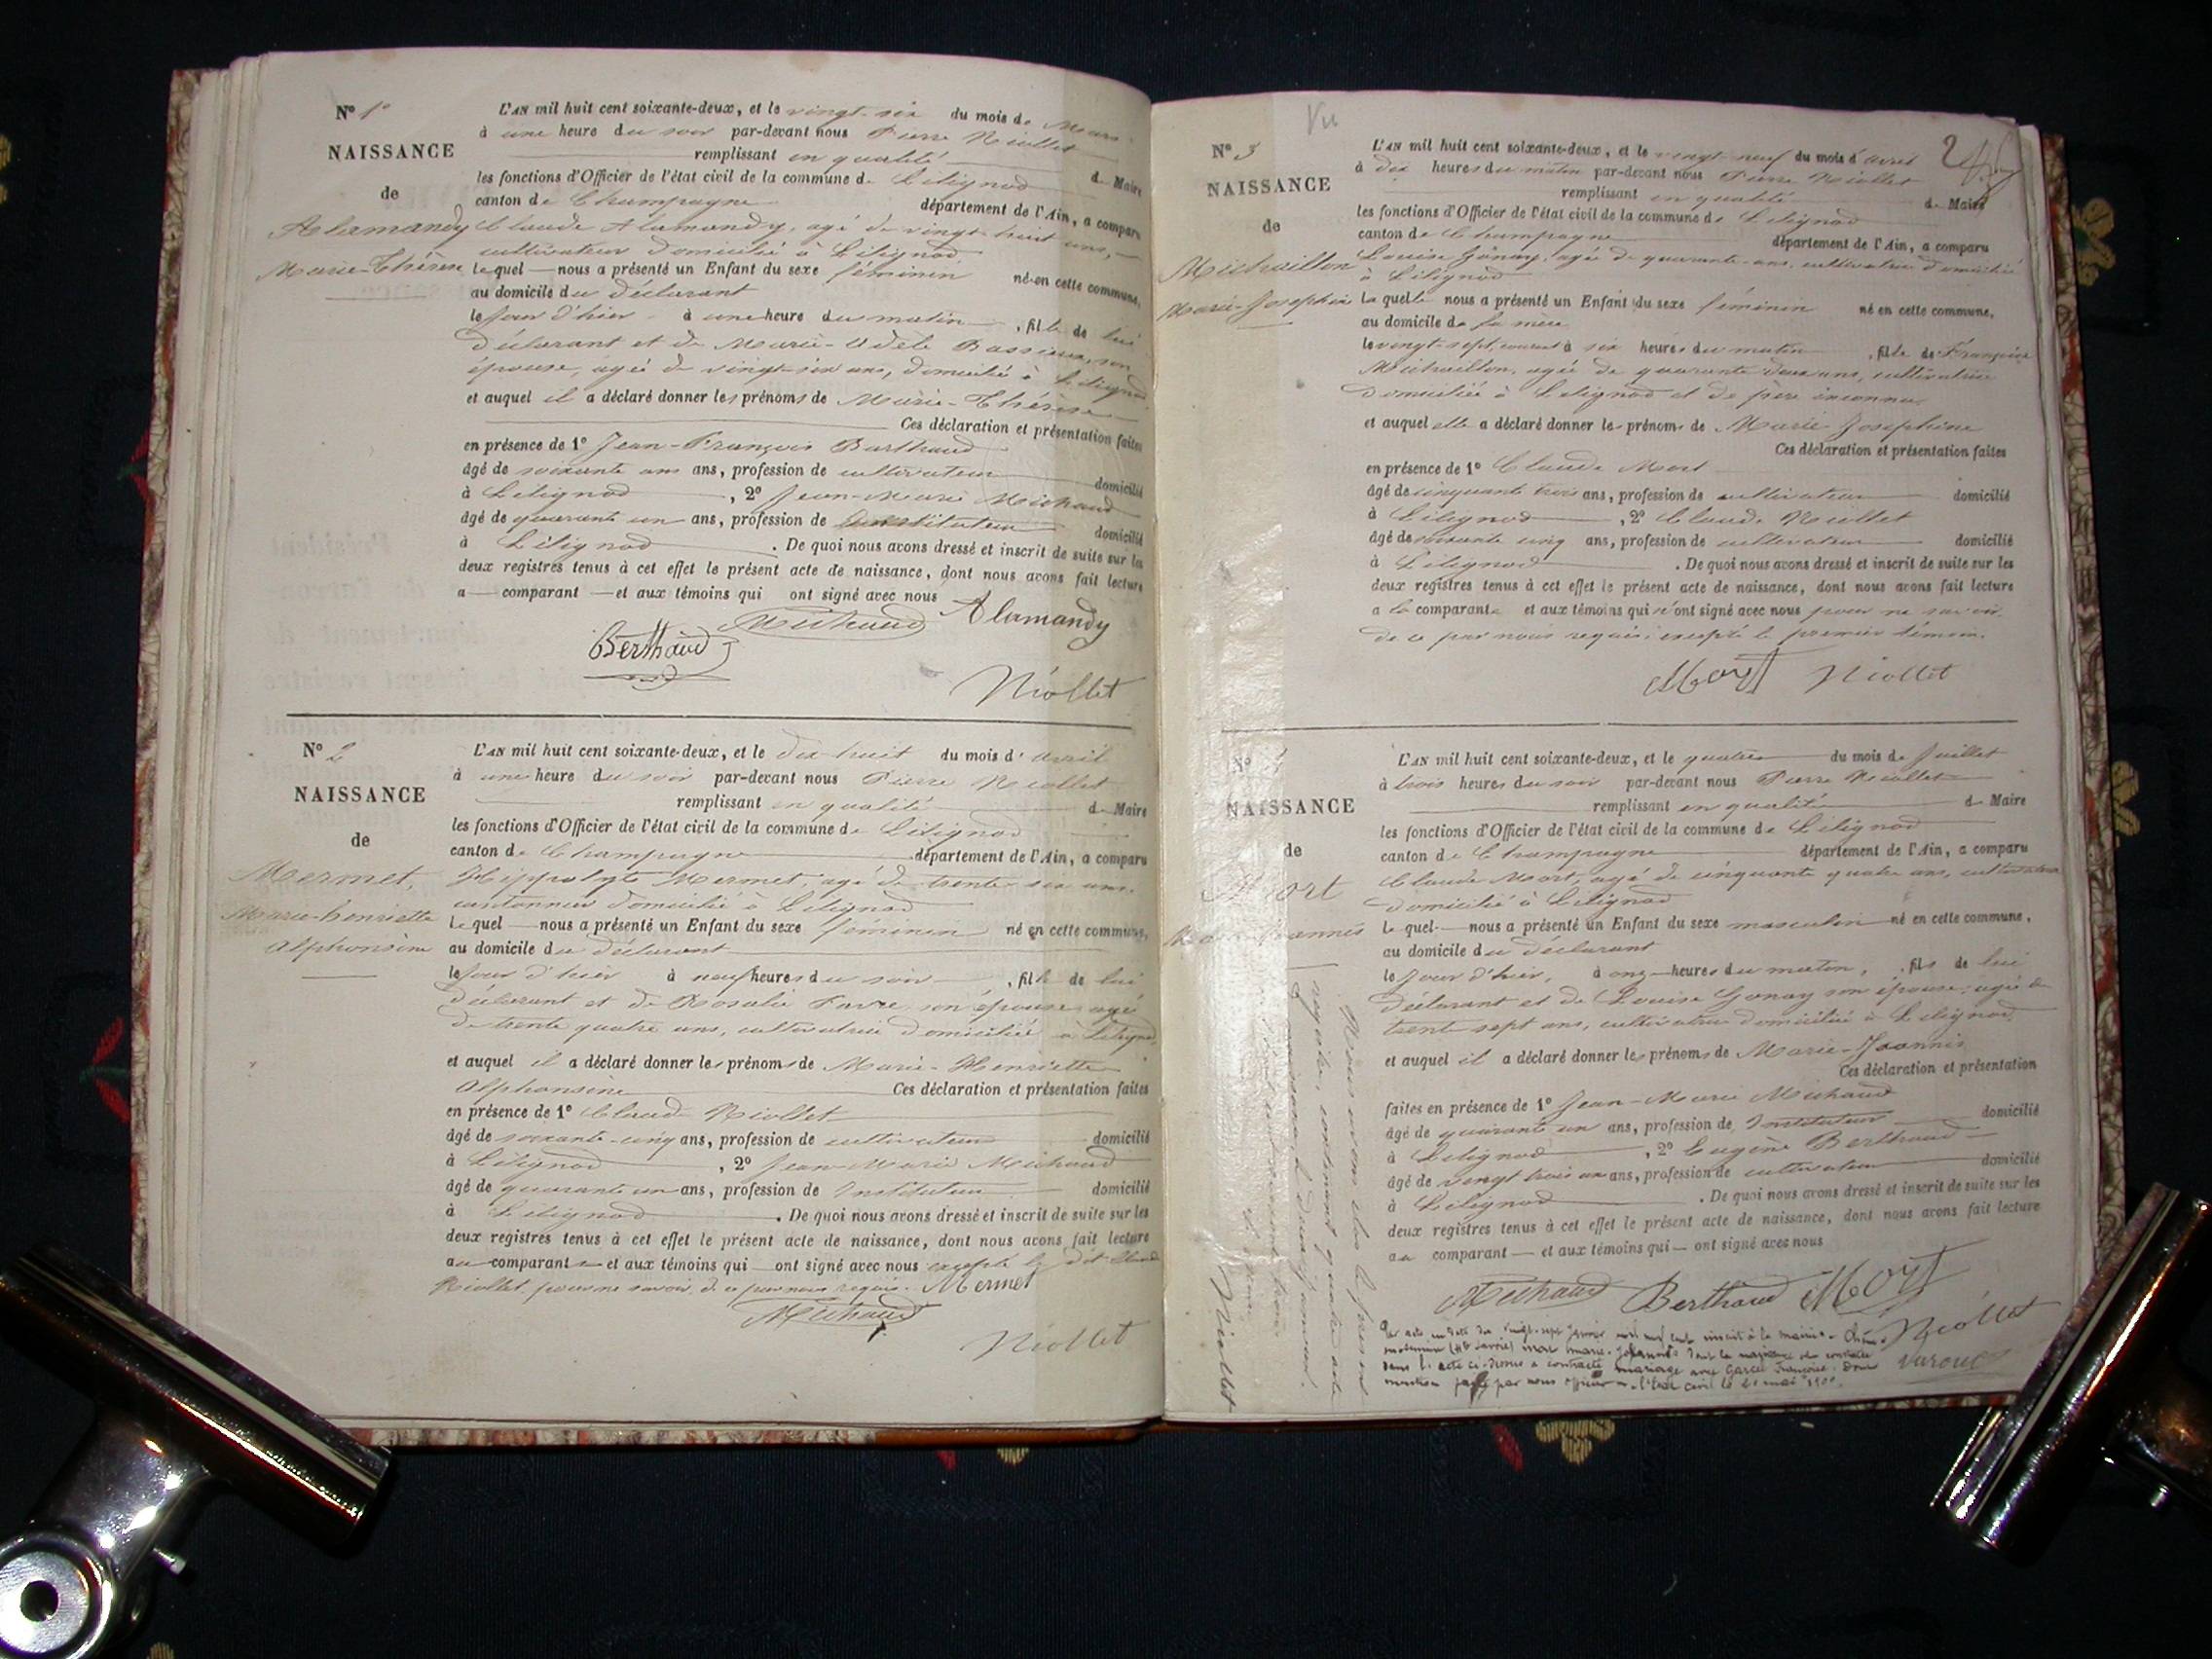 N° 1
NAISSANCE
de
Alamandy
Marie-Thérèse
L'AN mil huit cent soixante-deux, et le vingt-six du mois de Mars
à une heure du soir par-devant nous Pierre Niollet
remplissant en qualité de Maire
les fonctions d'Officier de l'état civil de la commune de Lilignod
canton de Champagne département de l'Ain, a comparu
Claude Alamandy, agé de vingt huit ans,
cultivateur domicilié à Lilignod
lequel nous a présenté un Enfant du sexe féminin né en cette commune,
au domicile du déclarant
le jour d'hier à une heure du matin, fille de lui
déclarant et de Marie-Adele son
épouse, agée de vingt-six ans, domicilié à Lilignod
et auquel il a déclaré donner les prénoms de Marie-Thérèse
Ces déclaration et présentation faites
en présence de 1° Jean-François Barthaud
âgé de soixante ans ans, profession de cultivateur domicilié
à Lilignod, 2° Jean-Marie Michaud
âgé de quarante un ans, profession de Instituteur domicilié
à Lilignod. De quoi nous avons dressé et inscrit de suite sur les
deux registres tenus à cet effet le présent acte de naissance, dont nous avons fait lecture
a comparant et aux témoins qui ont signé avec nous
Michaud Alamandy
Berthaud
Niollet
N° 2
NAISSANCE
de
Mermet,
Marie-henriette
alphonsine
L'AN mil huit cent soixante-deux, et le dix huit du mois d'avril
à une heure du soir par-devant nous Pierre Niollet
remplissant en qualité de Maire
les fonctions d'Officier de l'état civil de la commune de Lilignod
canton de Champagne département de l'Ain, a comparu
Hippolyte Mermet, agé de trente six ans,
cantonnier domicilié à Lilignod
lequel nous a présenté un Enfant du sexe feminin né en cette commune,
au domicile du déclarant
le jour d'hier à neuf heures du soir, fille de lui
déclarant et de Rosalie Favre son épouse agée
de trente quatre ans, cultivatrice domiciliée à Lilignod
et auquel il a déclaré donner les prénoms de Marie-Henriette
Alphonsine Ces déclaration et présentation faites
en présence de 1° Claude Niollet
âgé de soixante-cinq ans, profession de cultivateur domicilié
à Lilignod, 2° Jean-Marie Michaud
âgé de quarante un ans, profession de Instituteur domicilié
à Lilignod. De quoi nous avons dressé et inscrit de suite sur les
deux registres tenus à cet effet le présent acte de naissance, dont nous avons fait lecture
au comparant et aux témoins qui ont signé avec nous excepté le dit Claude
Niollet pour ne savoir, de ce par nous requis. Mermet
Michaud
Niollet
Vu
N° 3
NAISSANCE
de
Michaillon
Marie-Josephine
L'AN mil huit cent soixante-deux, et le vingt-neuf du mois d'avril
à dix heures du matin par-devant nous Pierre Niollet
remplissant en qualité de Maire
les fonctions d'Officier de l'état civil de la commune de Lilignod
canton de Champagne département de l'Ain, a comparu
Louise Gonay, agée de quarante ans, cultivatrice domiciliée
à Lilignod
laquelle nous a présenté un Enfant du sexe féminin né en cette commune,
au domicile de sa mère
le vingt-sept, courant à six heures du matin, fille de Françoise
Michaillon, agée de quarante deux ans, cultivatrice
domiciliée à Lilignod et de père inconnu
et auquel elle a déclaré donner les prénoms de Marie Josephine
Ces déclaration et présentation faites
en présence de 1° Claude Mort
âgé de cinquante trois ans, profession de cultivateur domicilié
à Lilignod, 2° Claude Niollet
âgé de soixante cinq ans, profession de cultivateur domicilié
à Lilignod. De quoi nous avons dressé et inscrit de suite sur les
deux registres tenus à cet effet le présent acte de naissance, dont nous avons fait lecture
a la comparante et aux témoins qui n'ont signé avec nous pour ne savoir
de ce par nous requis, excepté le premier témoin.
Mort Niollet
N°
NAISSANCE
de
Mort
L'AN mil huit cent soixante-deux, et le quatre du mois de Juillet
à trois heures du soir par-devant nous Pierre Niollet
remplissant en qualité de Maire
les fonctions d'Officier de l'état civil de la commune de Lilignod
canton de Champagne département de l'Ain, a comparu
Claude Mort, agé de cinquante quatre ans, cultivateur
domicilié à Lilignod
lequel nous a présenté un Enfant du sexe masculin né en cette commune,
au domicile du déclarant
le jour d'hier, à onze heures du matin, fils de lui
déclarant et de Louise Gonay son épouse, agée de
trente sept ans, cultivatrice domiciliée à Lilignod,
et auquel il a déclaré donner les prénoms de Marie-Joannis
Ces déclaration et présentation
faites en présence de 1° Jean-Marie Michaud
âgé de quarante un ans, profession de Instituteur domicilié
à Lilignod, 2° Eugène Berthaud
âgé de vingt trois ans ans, profession de cultivateur domicilié
à Lilignod. De quoi nous avons dressé et inscrit de suite sur les
deux registres tenus à cet effet le présent acte de naissance, dont nous avons fait lecture
au comparant et aux témoins qui ont signé avec nous
Michaud Berthaud Mort
Niollet
Par acte en date du vingt-sept Janvier mil neuf cent inscrit à la mairie
(Hte Savoie) Mort Marie-Johannis dont la naissance est constatée
dans l'acte ci-dessus a contracté mariage avec Garce Françoise. Dont
mention faite par nous officier de l'Etat civil le 21 mai 1900.
Nous avons clos le présent
registre, contenant quatre actes
Niollet